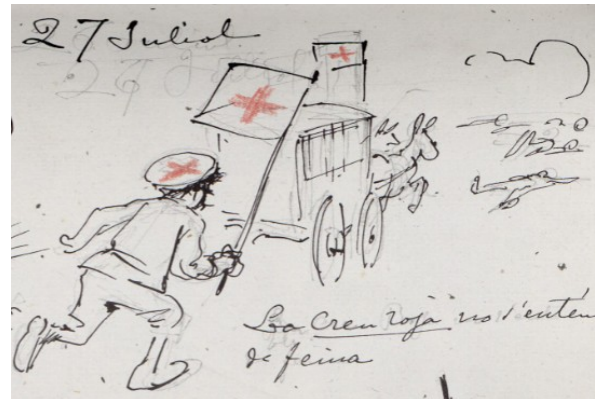 27 Juliol
La Creu roja no s'enten
de feina